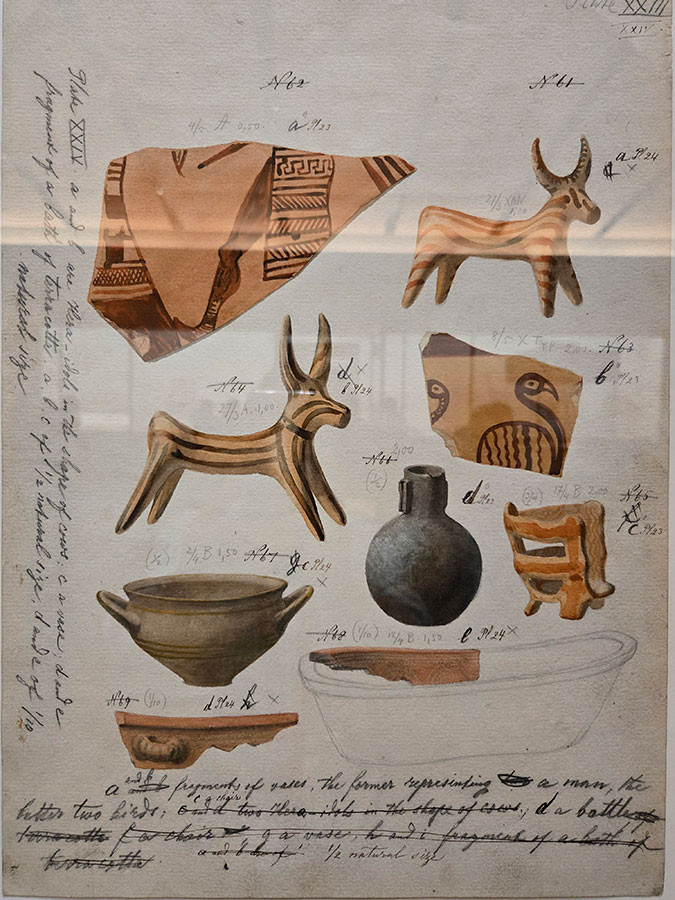 Plate XXIII
XXIV
N 62
N 61
4/5 A 0,50. a Pl 23
a Pl 24
21/3
1,00
N 63
b Pl 23
N 64
b Pl 24
27/3 A. 1,00.
N 66
2,00
(1/2)
d Pl 23
(3/4) 17/4 B 2,00
N 65
c Pl 23
(1/2) 2/4 B 1,50 N 67 g c Pl 24
N 68 (1/10) 12/4 B 1,50 e Pl 24
N 69 (1/10) d Pl 24 h
Plate XXIV. a and b are Hera-idols in the shape of cows; c a vase; d and e
fragment of a bath of terracotta, a. b. c of 1/2 natural size, d and e of 1/10
natural size
a and b fragments of vases, the former representing a man, the
latter two birds; c a chair c and d two Hera-idols in the shape of cows.; d a bottle of
terracotta f a chair g a vase, h and i fragment of a bath of
terracotta a and b do of 1/2 natural size